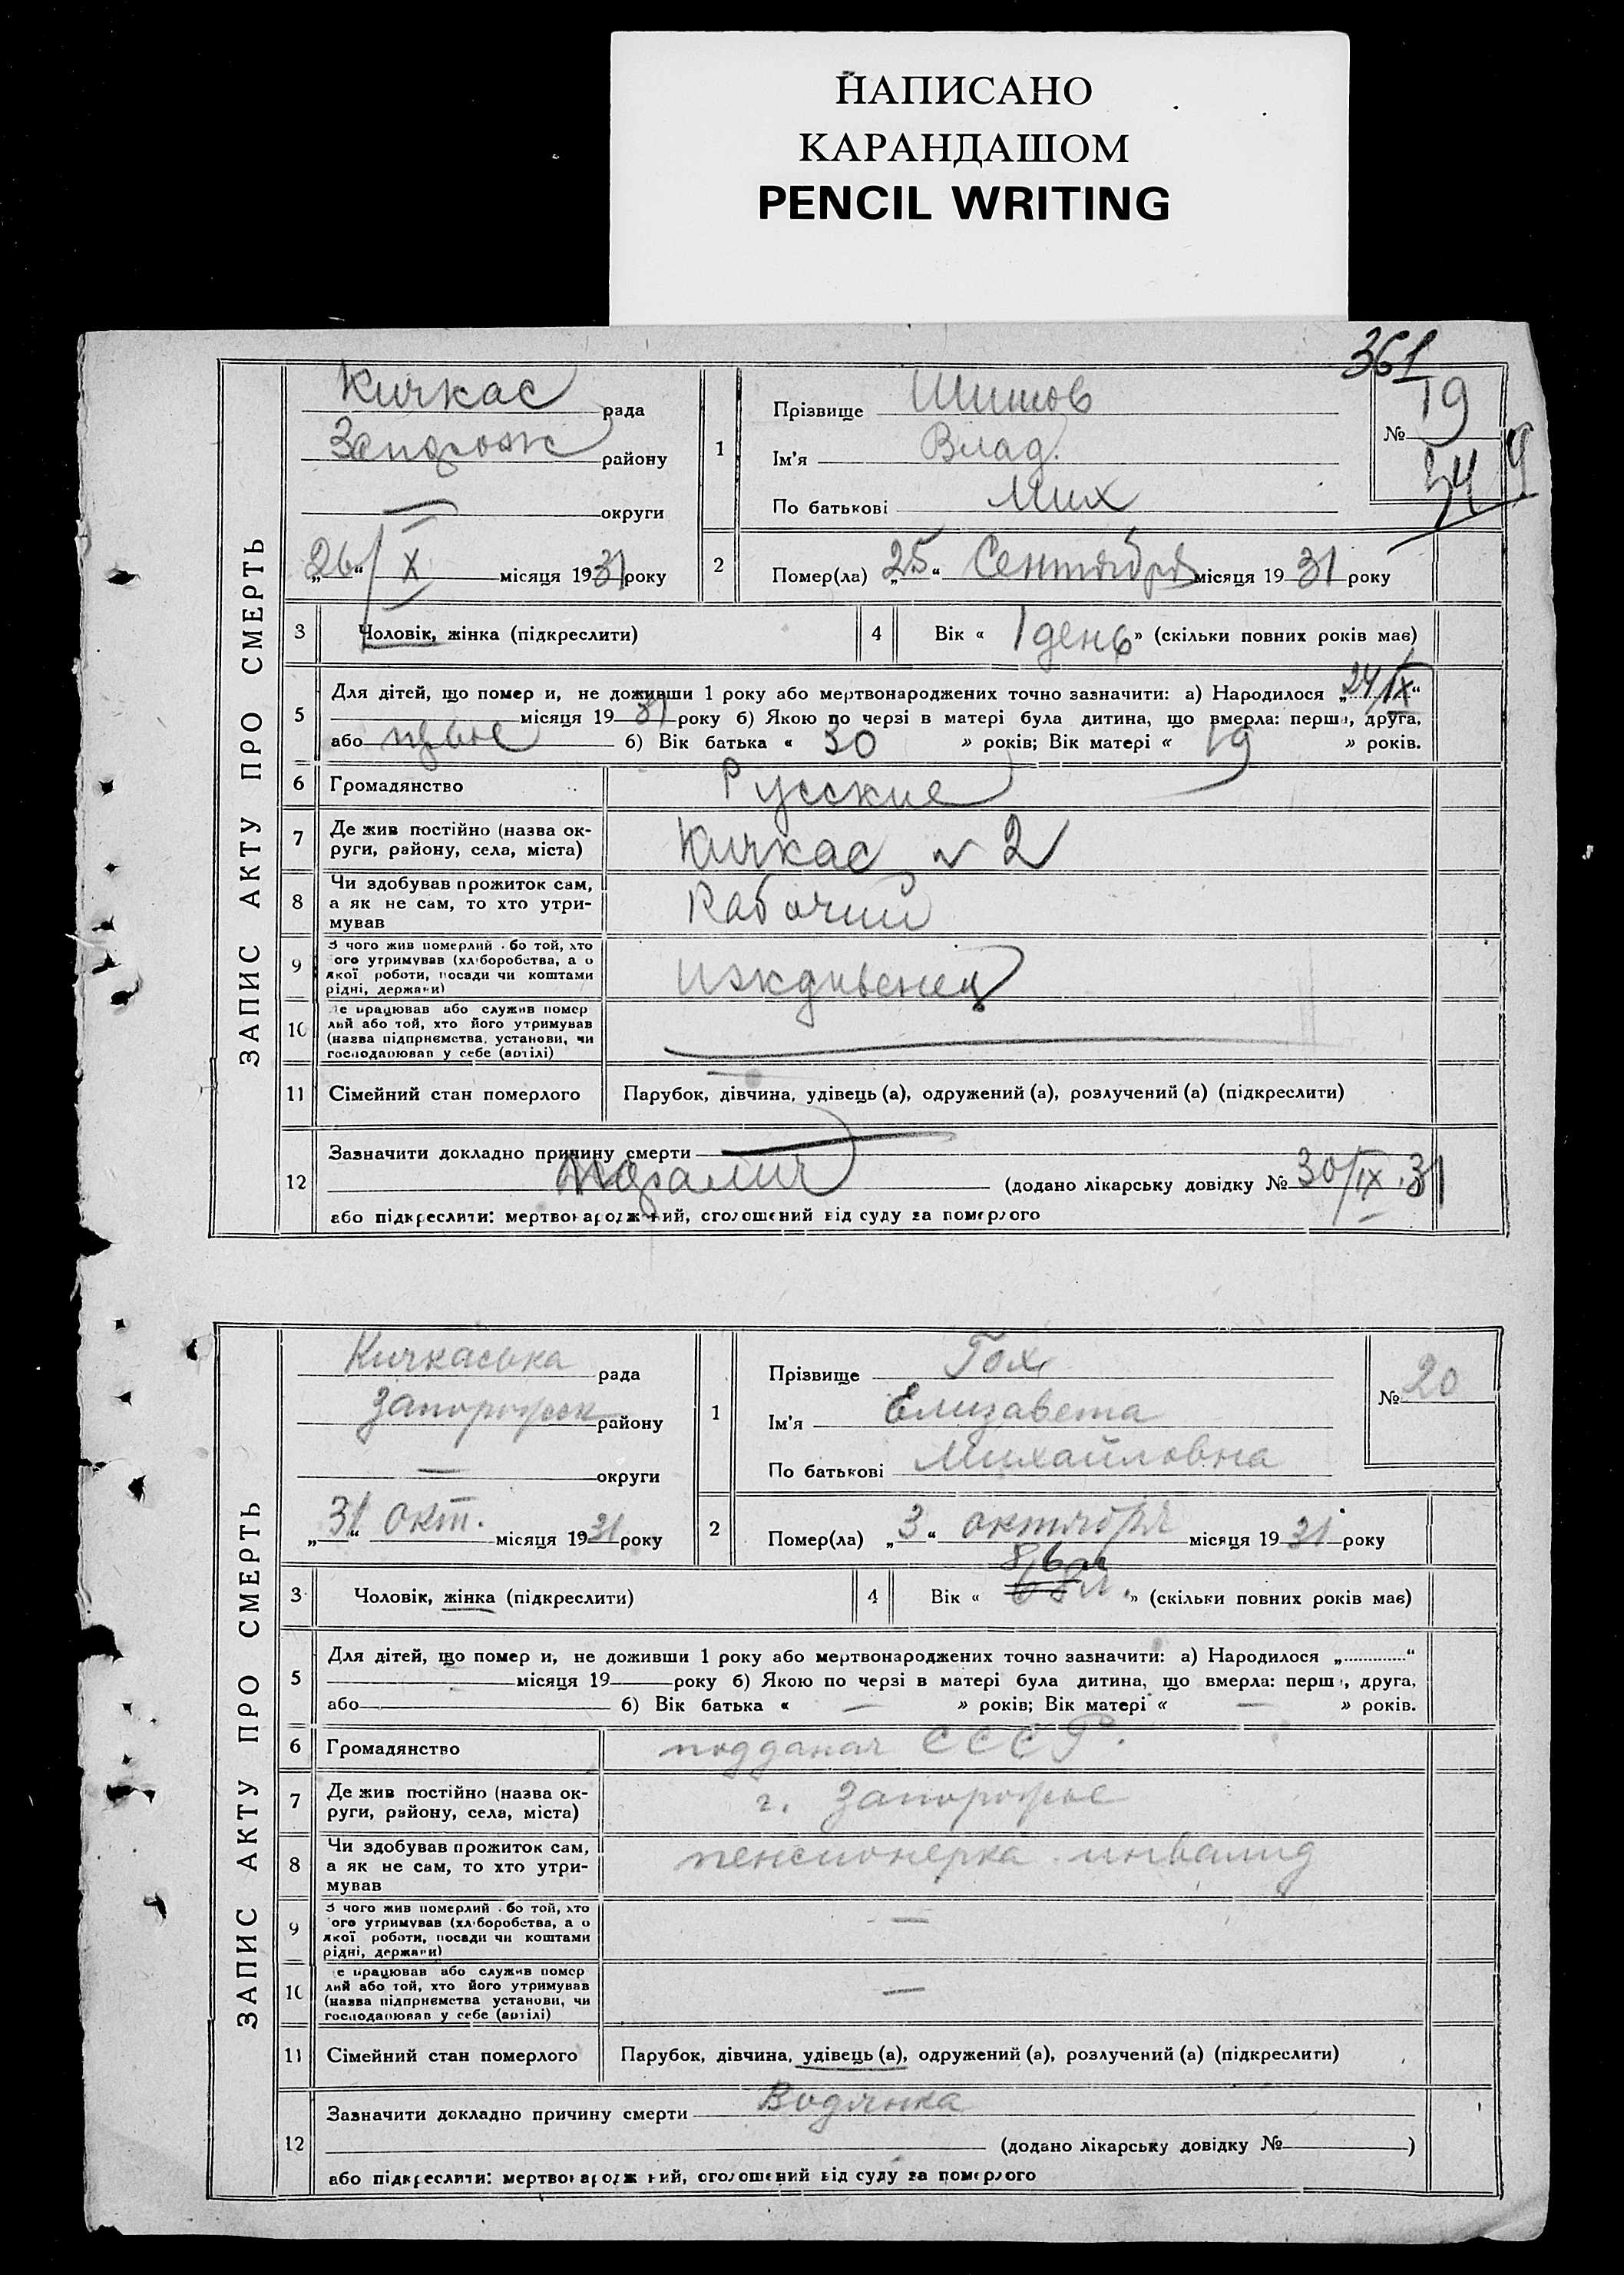 НАПИСАНО
КАРАНДАШОМ
PENCIL WRITING
361
ЗАПИС АКТУ ПРО СМЕРТЬ
Кичкас рада
Запорож району
— округи
„26“ X місяця 1931 року
1
Прізвище Шишов
Ім'я Влад.
По батькові Мих
№ 19
2
Помер(ла) „25“ Сентября місяця 1931 року
3
Чоловік, жінка (підкреслити)
4
Вік « 1 день » (скільки повних років має)
5
Для дітей, що помер и, не доживши 1 року або мертвонароджених точно зазначити: а) Народилося „24/IX“
місяця 1931 року б) Якою по черзі в матері була дитина, що вмерла: перша, друга,
або первое б) Вік батька « 30 » років; Вік матері « 19 » років.
6
Громадянство
Русские
7
Де жив постійно (назва ок-
руги, району, села, міста)
Кичкас № 2
8
Чи здобував прожиток сам,
а як не сам, то хто утри-
мував
Рабочий
9
З чого жив померлий або той, хто
його утримував (хліборобства, а о
якої роботи, посади чи коштами
рідні, держави)
иждивенец
10
Де працював або служив помер
лий або той, хто його утримував
(назва підприємства, установи, чи
господарював у себе (артілі)
—
11
Сімейний стан померлого
Парубок, дівчина, удівець (а), одружений (а), розлучений (а) (підкреслити)
12
Зазначити докладно причину смерти
(додано лікарську довідку № 30/IX 31
або підкреслити: мертвонароджений, оголошений від суду за померлого
ЗАПИС АКТУ ПРО СМЕРТЬ
Кичкаська рада
Запорожск району
— округи
„31“ окт. місяця 1931 року
1
Прізвище Гох
Ім'я Елизавета
По батькові Михайловна
№ 20
2
Помер(ла) „3“ октября місяця 1931 року
3
Чоловік, жінка (підкреслити)
4
Вік « » (скільки повних років має)
5
Для дітей, що помер и, не доживши 1 року або мертвонароджених точно зазначити: а) Народилося „ “
місяця 19 року б) Якою по черзі в матері була дитина, що вмерла: перша, друга,
або б) Вік батька « — » років; Вік матері « — » років.
6
Громадянство
подданая СССР.
7
Де жив постійно (назва ок-
руги, району, села, міста)
г. Запорожье
8
Чи здобував прожиток сам,
а як не сам, то хто утри-
мував
пенсионерка инвалид
9
З чого жив померлий або той, хто
його утримував (хліборобства, а о
якої роботи, посади чи коштами
рідні, держави)
—
10
Де працював або служив помер
лий або той, хто його утримував
(назва підприємства установи, чи
господарював у себе (артілі)
—
11
Сімейний стан померлого
Парубок, дівчина, удівець (а), одружений (а), розлучений (а) (підкреслити)
12
Зазначити докладно причину смерти Водянка
(додано лікарську довідку № )
або підкреслити: мертвонароджений, оголошений від суду за померлого